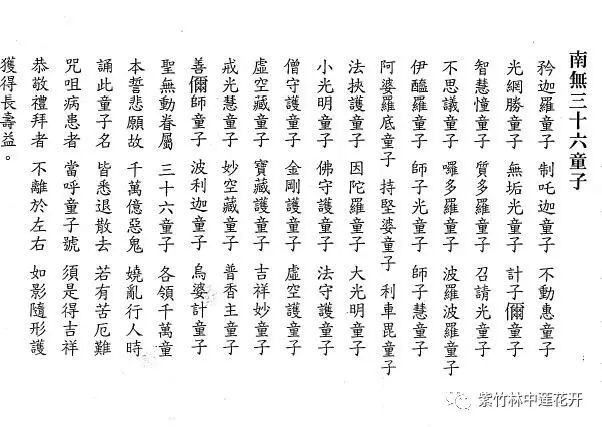 南無三十六童子
矜迦羅童子 制吒迦童子 不動惠童子
光網勝童子 無垢光童子 計子爾童子
智慧憧童子 質多羅童子 召請光童子
不思議童子 囉多羅童子 波羅波羅童子
伊醯羅童子 師子光童子 師子慧童子
阿婆羅底童子 持堅婆童子 利車毘童子
法挾護童子 因陀羅童子 大光明童子
小光明童子 佛守護童子 法守護童子
僧守護童子 金剛護童子 虛空護童子
虛空藏童子 寶藏護童子 吉祥妙童子
戒光慧童子 妙空藏童子 普香主童子
善爾師童子 波利迦童子 烏婆計童子
聖無動眷屬 三十六童子 各領千萬童
本誓悲願故 千萬億惡鬼 嬈亂行人時
誦此童子名 皆悉退散去 若有苦厄難
咒咀病患者 當呼童子號 須是得吉祥
恭敬禮拜者 不離於左右 如影隨形護
獲得長壽益。
紫竹林中莲花开